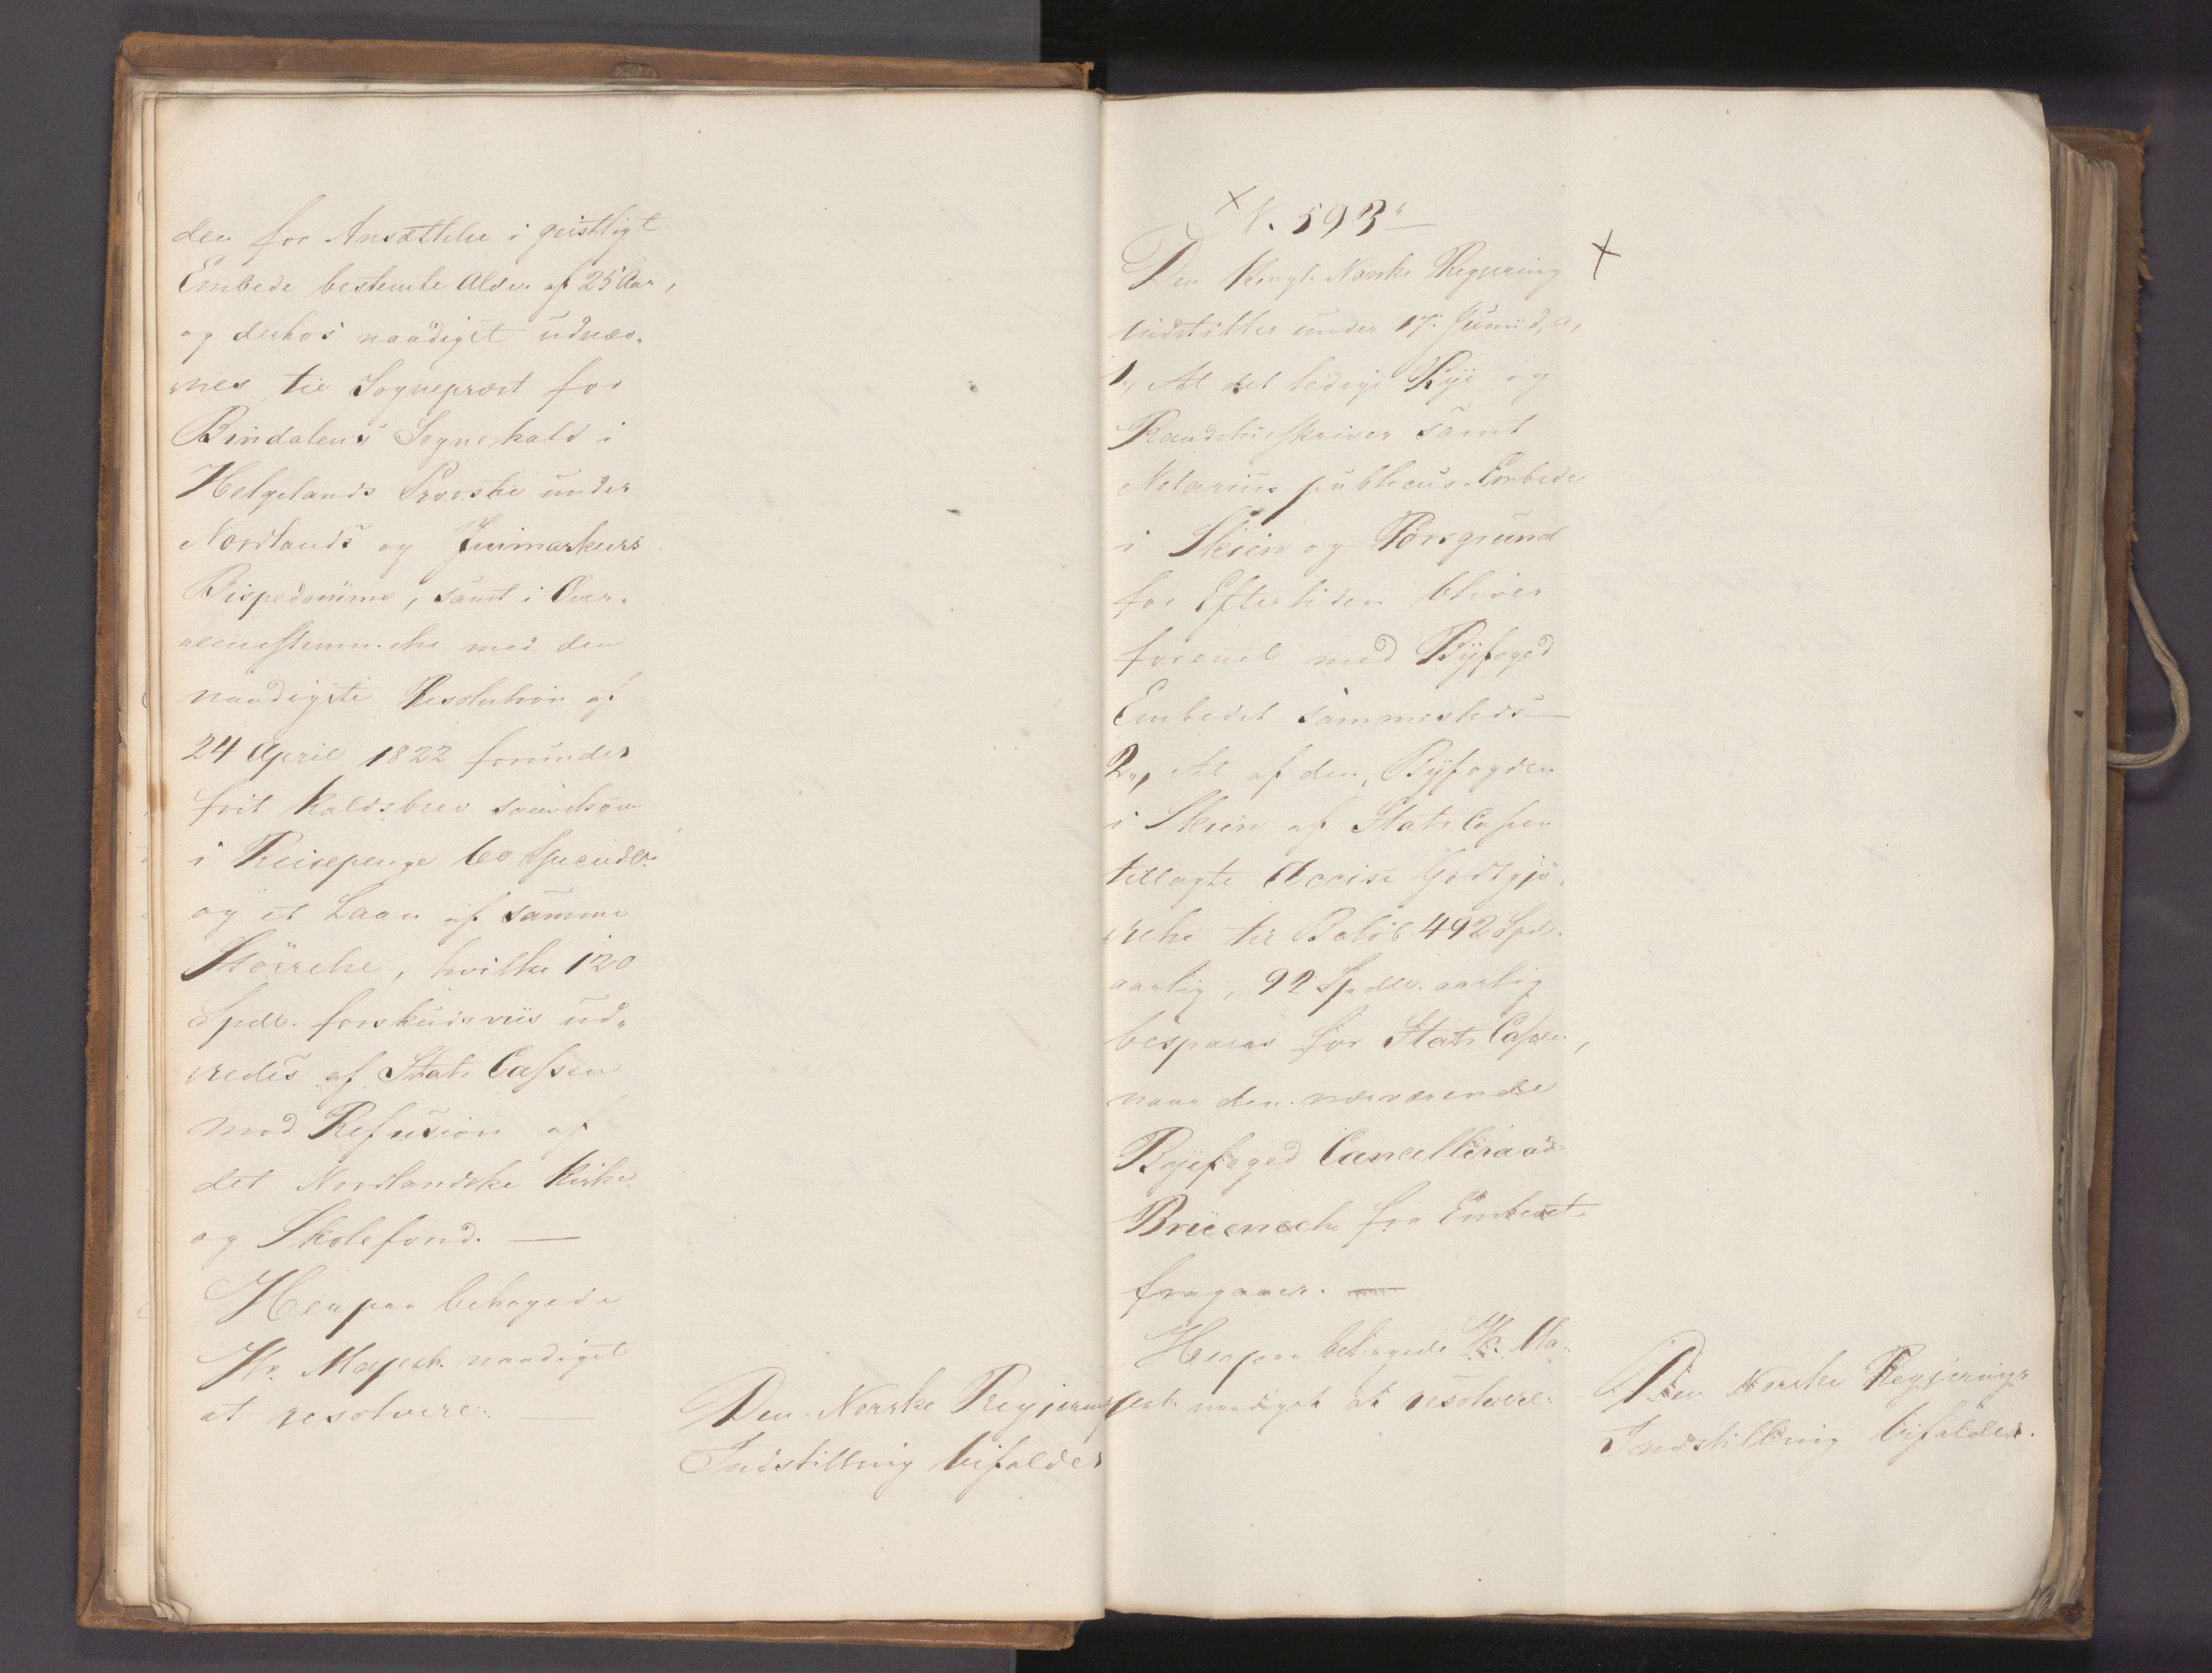 den for Ansættelse i geistligt
Embede bestemte Alder af 25 Aar,
og derhos naadigst udnæv„
„nes til Sognepræst for
Bindalens Sognekald i
Helgelands Provstie under
Nordlands og Finmarkens
Bispedømme, samt i Over„
„eensstemmelse med den
naadigste Resolution af
24 April 1822 forundes
frit Kaldsbrev saavelsom
i Reisepenge 60 Speciedlr.
og et Laan af samme
Størrelse, hvilke 120
Spdlr. forskudsviis ud„
redes af Stats Cassen
mod Refusion af
det Nordlandske Kirke
og Skolefond. —
Herpaa behagede
Hs. Majest. naadigst
at resolvere: —
Den Norske Regjerings
Indstilling bifaldes
N. 593 —
Den Kongl. Norske Regjering
indstiller under 17. Junii d, a,
1, At det ledige Bye og
Raadstueskriver samt
Notarius publicus Embede
i Skien og Porsgrund
for Eftertiden bliver
forenet med Byfoged
Embedet sammesteds —
2, At af den, Byfogden
i Skien af Stats Cassen
tillagte Accise Godtgjø„
„relse til Beløb 492 Spd.
aarlig, 92 Spdlr. aarlig
bespares for Stats Cassen,
naar den nærværende
Byefoged Cancelliraad
Brüenech fra Embedet
fragaaer. —
Herpaa behagede Hs. Ma„
jest. naadigst at resolvere:
Den Norske Regjerings
Indstilling bifaldes.